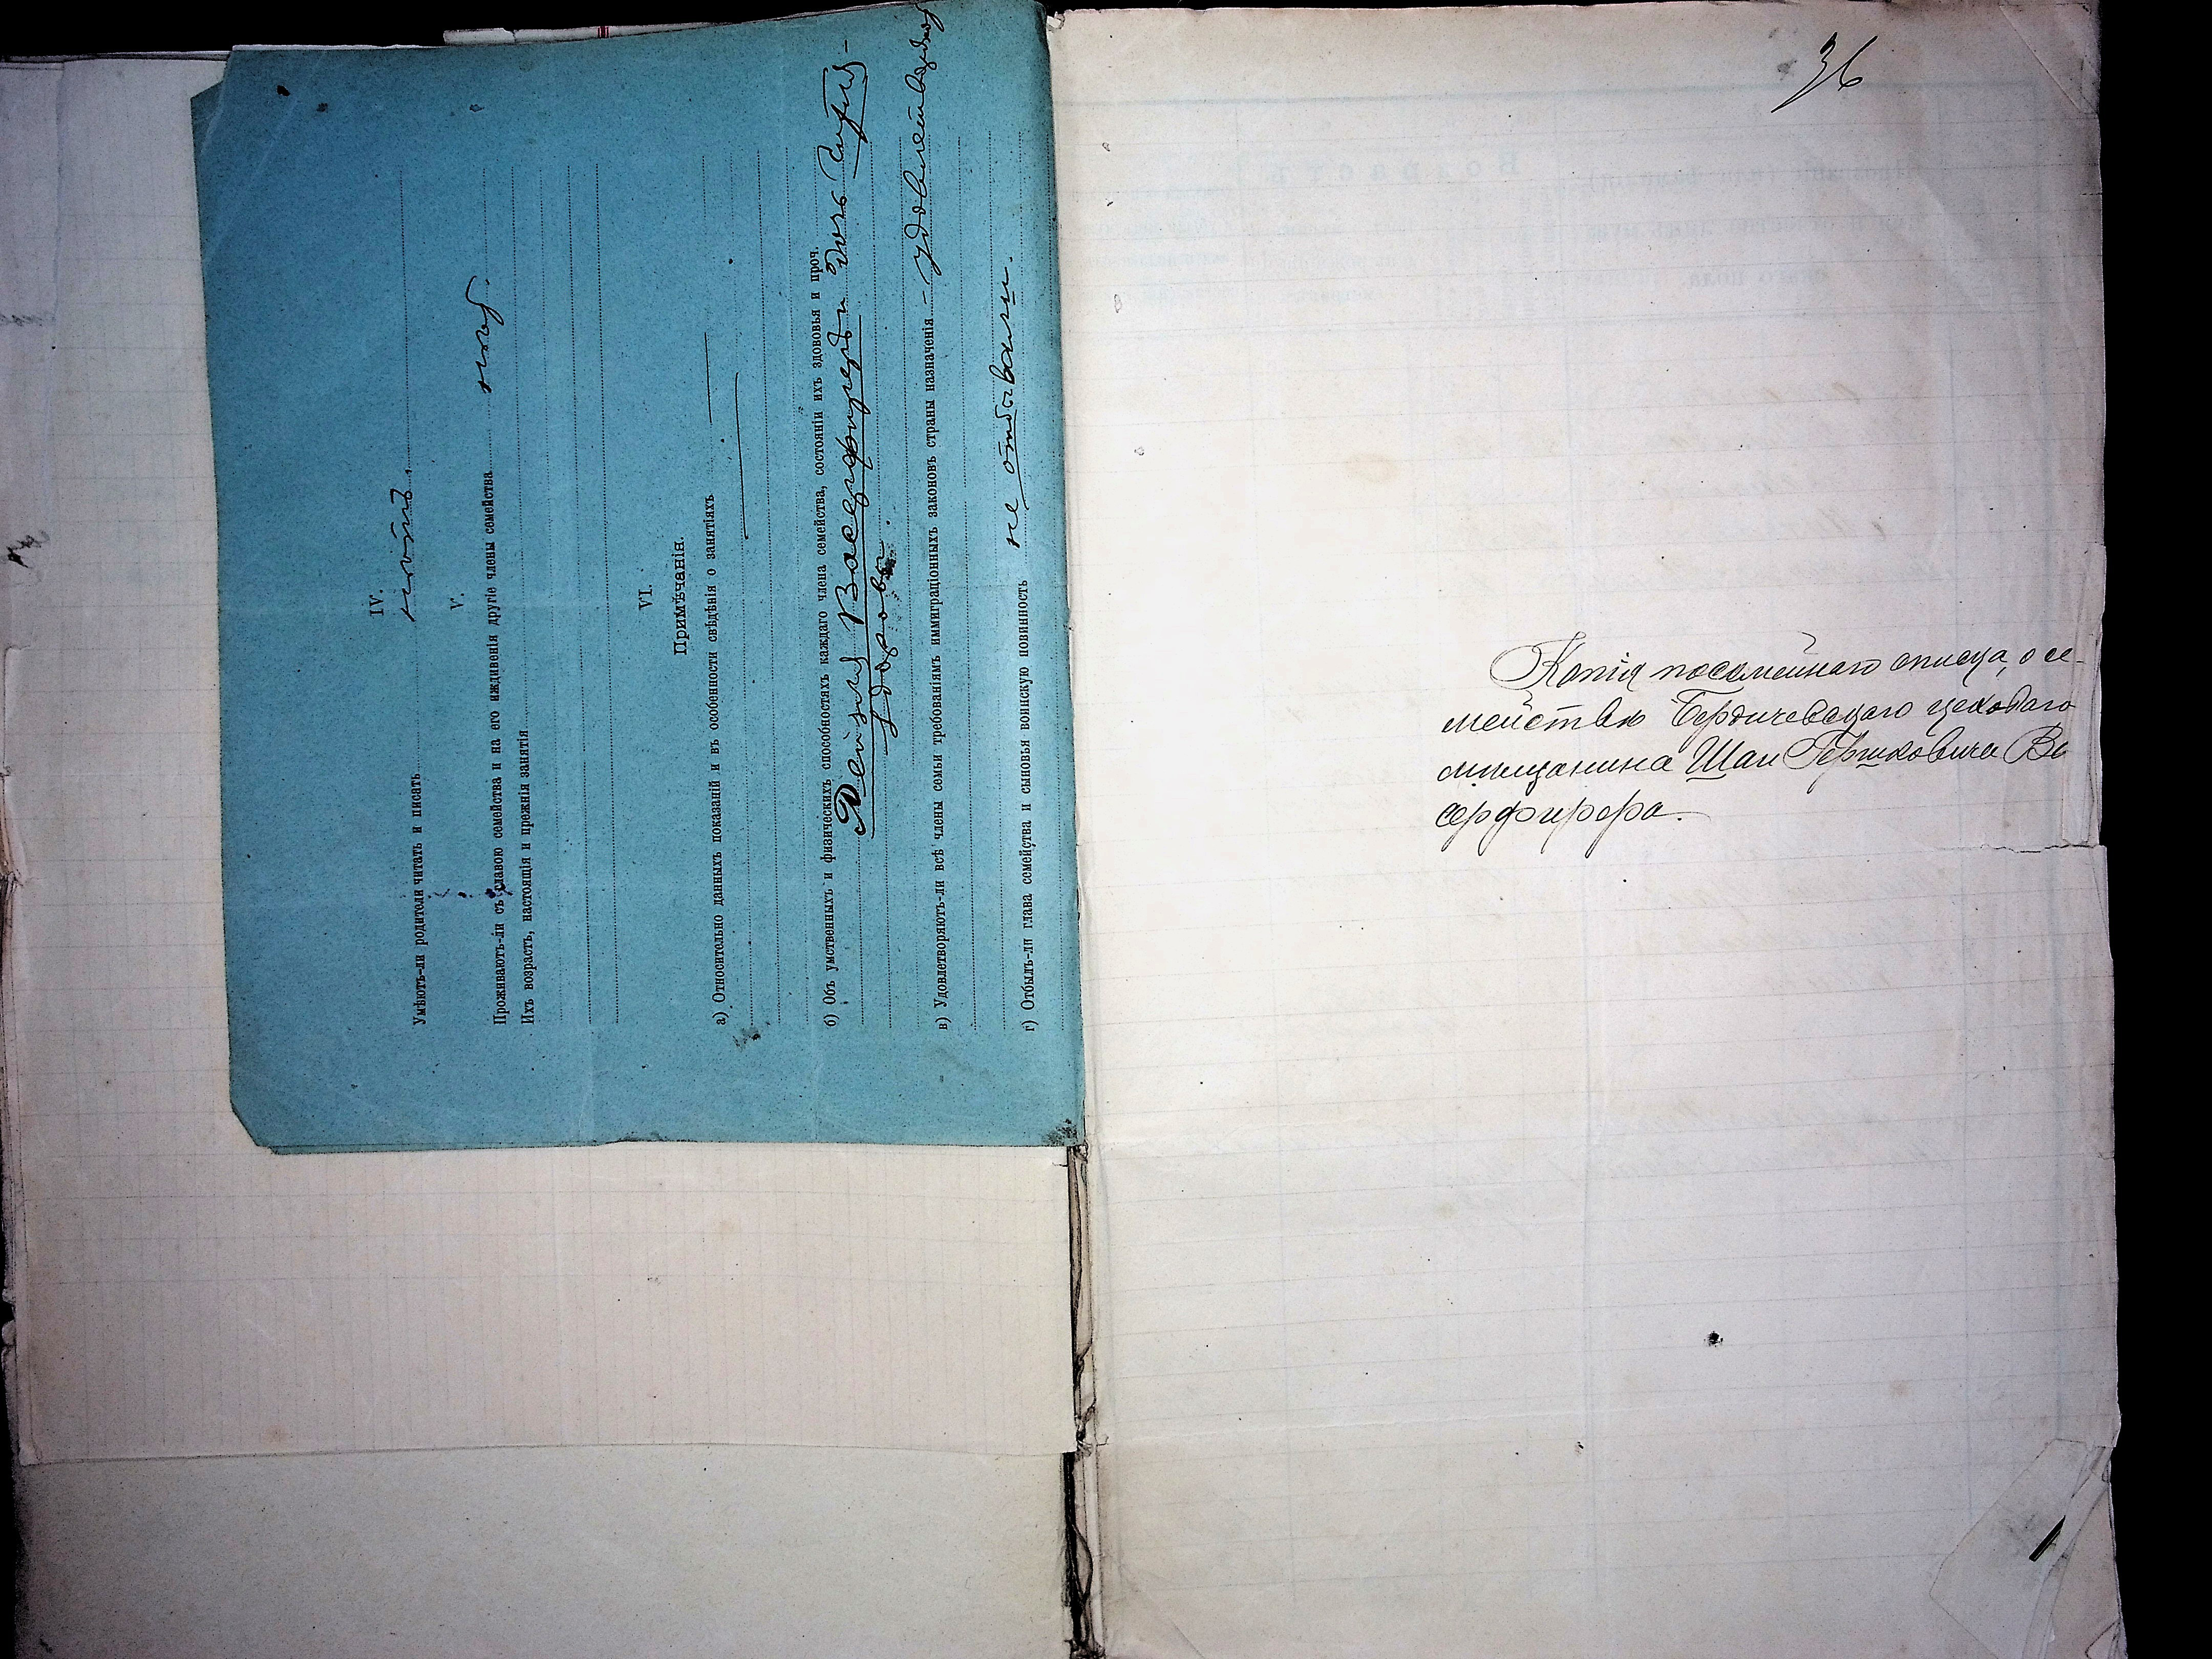 IV.
Умѣютъ-ли родители читать и писать
V.
Проживаютъ-ли съ главою семейства и на его иждивенія другіе члены семейства
Ихъ возрастъ, настоящія и прежнія занятія
VI.
Примѣчанія.
а) Относительно данныхъ показаній и въ особенности свѣдѣнія о занятіяхъ
б) Объ умственныхъ и физическихъ способностяхъ каждаго члена семейства, состояніи ихъ здововья и проч.
Лейзя Васерфиреръ и дочь
здоровы.
в) Удовлетворяютъ-ли всѣ члены семьи требованіямъ иммиграціонныхъ законовъ страны назначенія – удовлетворяютъ
г) Отбылъ-ли глава семейства и сыновья воинскую повинность не отбывали.
36
Копія посемейнаго списка, о се-
мействѣ Бердичевскаго цеховаго
мѣщанина Шаи Гершковича Ва
серфирера.